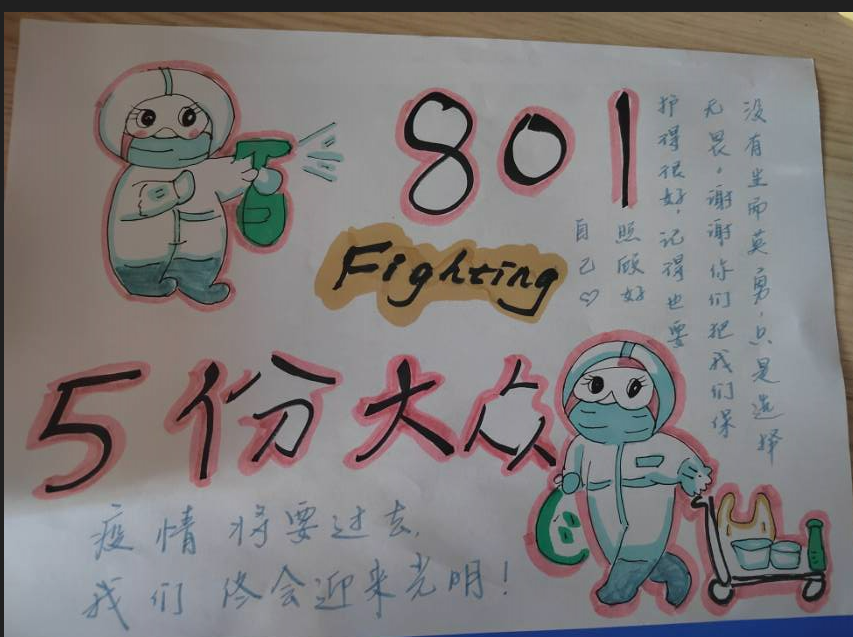 801
Fighting
没有生而英勇,只是选择
无畏。谢谢你们把我们保
护得很好,记得也要
照顾好
自己♡
5份大众
疫情将要过去,
我们终会迎来光明!